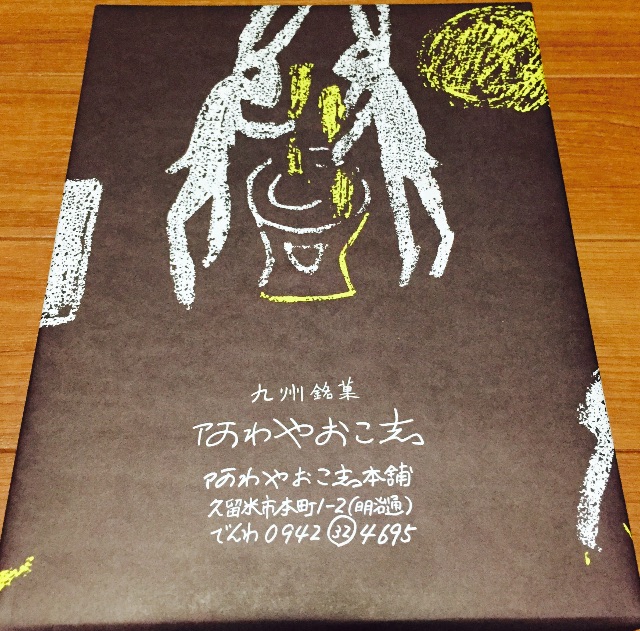 九州銘菓
阿わやおこ志
阿わやおこ志本舗
久留米市本町1-2(明治通)
でんわ0942㉜4695